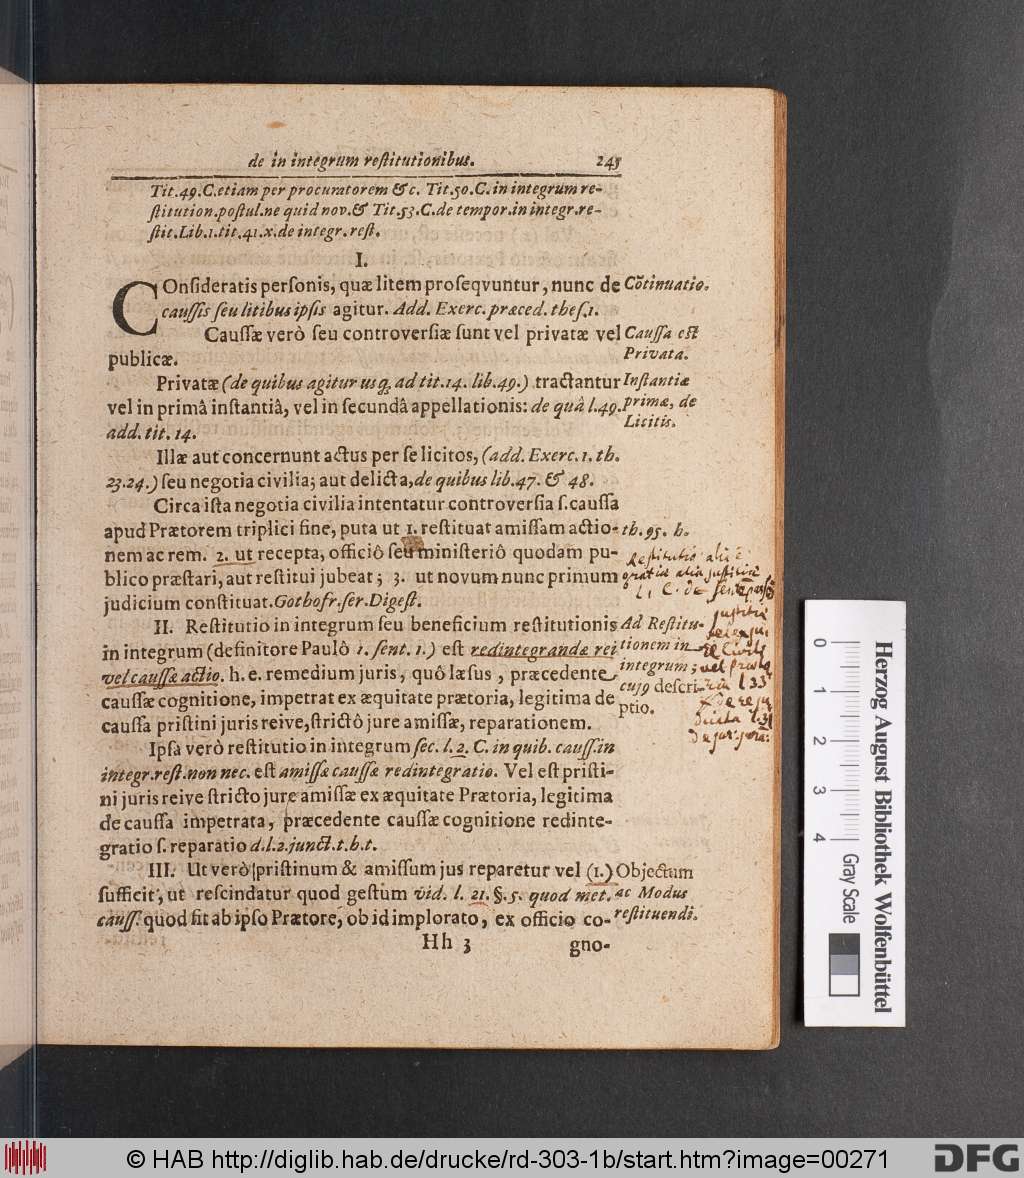 de in integrum reſtitutionibus. 245
Tit. 49. C. etiam per procuratorem &c. Tit. 50. C. in integrum re-
ſtitution. poſtul. ne quid nov. & Tit. 53. C. de tempor. in integr. re-
ſtit. Lib. 1. tit. 41. x. de integr. reſt.
I.
COnſideratis perſonis, quæ litem proſeqvuntur, nunc de
cauſſis ſeu litibus ipſis agitur. Add. Exerc. præced. theſ. 1.
Cõtinuatio.
Cauſſæ verò ſeu controverſiæ ſunt vel privatæ vel
publicæ.
Cauſſa est
Privata.
Privatæ (de quibus agitur usq; ad tit. 14. lib. 49.) tractantur
vel in primâ inſtantiâ, vel in ſecundâ appellationis: de quâ l. 49.
add. tit. 14.
Inſtantiæ
primæ, de
Licitis.
Illæ aut concernunt actus per ſe licitos, (add. Exerc. 1. th.
23. 24.) ſeu negotia civilia; aut delicta, de quibus lib. 47. & 48.
Circa iſta negotia civilia intentatur controverſia ſ. cauſſa
apud Prætorem triplici fine, puta ut 1. reſtituat amiſſam actio-
nem ac rem. 2. ut recepta, officiô ſeu miniſteriô quodam pu-
blico præſtari, aut reſtitui jubeat; 3. ut novum nunc primum
judicium conſtituat. Gothofr. ſer. Digeſt.
th. 95. h.
Reſtitutio alia ẽ
gratiæ alia juſtitiæ
II. Reſtitutio in integrum ſeu beneficium reſtitutionis
in integrum (definitore Paulô 1. ſent. 1.) eſt redintegrandæ rei
vel cauſſæ actio. h. e. remedium juris, quô læſus, præcedente
cauſſæ cognitione, impetrat ex æquitate prætoria, legitima de
cauſſa priſtini juris reive, ſtrictô jure amiſſæ, reparationem.
Ad Reſtitu-
tionem in
integrum;
cujꝰ deſcri-
ptio.
Ipſa verò reſtitutio in integrum ſec. l. 2. C. in quib. cauſſ. in
integr. reſt. non nec. eſt amiſſæ cauſſæ redintegratio. Vel eſt priſti-
ni juris reive ſtricto jure amiſſæ ex æquitate Prætoria, legitima
de cauſſa impetrata, præcedente cauſſæ cognitione redinte-
gratio ſ. reparatio d. l. 2. junct. t. h. t.
III. Ut verò priſtinum & amiſſum jus reparetur vel (1.)
ſufficit, ut reſcindatur quod geſtum vid. l. 21. §. 5. quod met.
cauſſ. quod fit ab ipſo Prætore, ob id implorato, ex officio co-
Objectum
ac Modus
reſtituendi.
Hh 3 gno-
0 1 2 3 4
Gray Scale
Herzog August Bibliothek Wolfenbüttel
© HAB http://diglib.hab.de/drucke/rd-303-1b/start.htm?image=00271
DFG